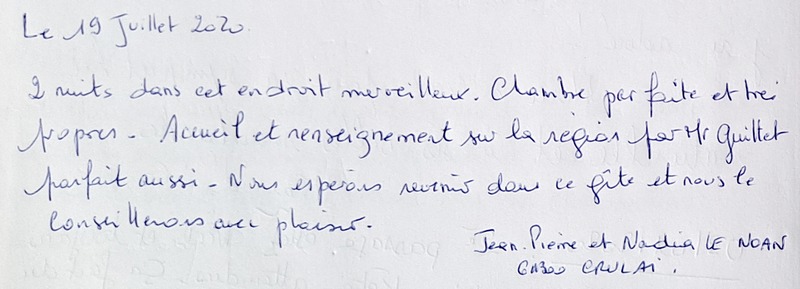 Le 19 Juillet 2020.
2 nuits dans cet endroit merveilleux. Chambre parfaite et trei
propres - Accueil et renseignement sur la région par Mr Guillet
parfait aussi - Nous espérons revenir dans ce gîte et nous le
conseillerons avec plaisir.
Jean-Pierre et Nadia LE NOAN
61300 CRULAI.